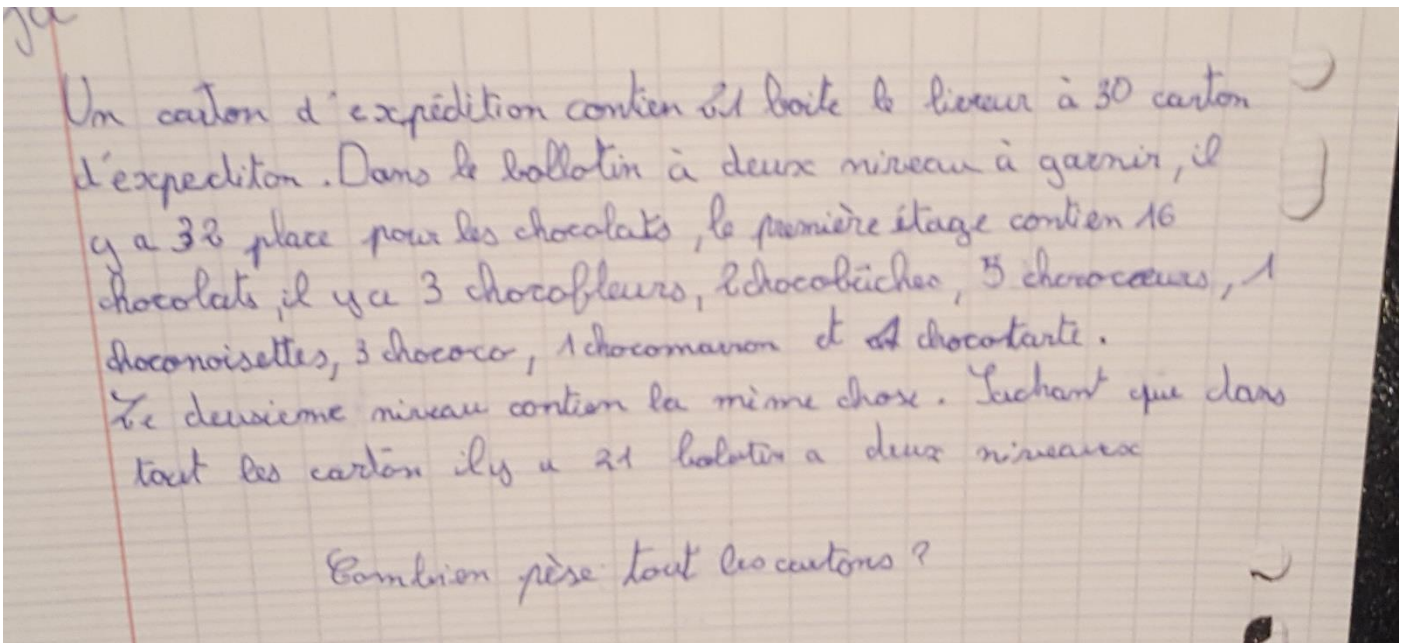 Un carton d'expédition contien 21 boite le livreur à 30 carton
d'expediton. Dans le ballotin à deux niveau à garnir, il
y a 32 place pour les chocolats, le première étage contien 16
chocolats, il y a 3 chocofleurs, 2 chocobûches, 5 chococœurs, 1
choconoisettes, 3 chococo, 1 chocomarron et 1 chocotante.
Le deusieme niveau contien la même chose. Sachant que dans
tout les carton il y a 21 balotin a deux niveaux
Combien pèse tout les cartons ?